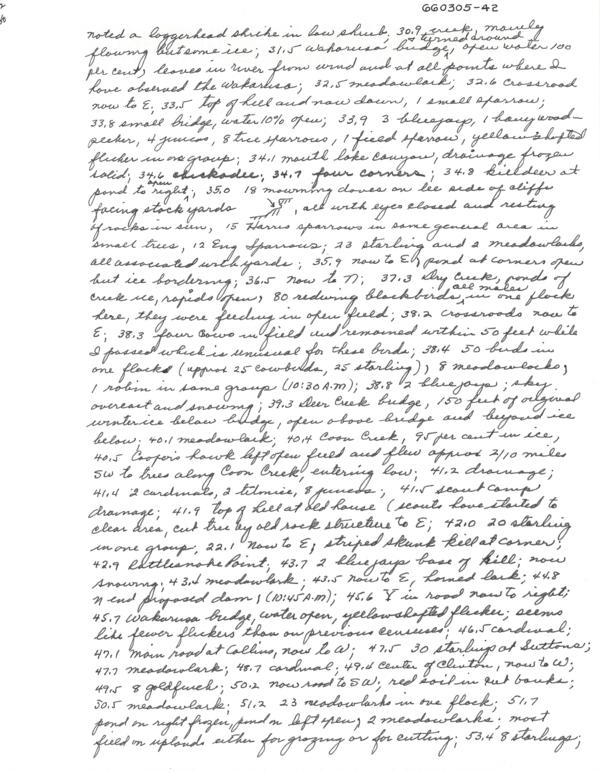 GG0305-42
noted a loggerhead shrike in low shrub, 30.9 creek, mainly
& turned around
flowing but some ice; 31.5 Wakarusa bridge, open water 100
per cent, leaves in river from wind and at all points where I
have observed the Wakarusa; 32.5 meadowlark; 32.6 crossroad
now to E; 33.5 top of hill and now down, 1 small sparrow;
33.8 small bridge, water 10% open; 33.9 3 bluejays, 1 hairy wood-
pecker, 4 juncos, 8 tree sparrows, 1 field sparrow, yellowshafted
flicker in one group; 34.1 mouth lake canyon, drainage frozen
solid; 34.6 chickadee; 34.7 four corners; 34.8 killdeer at
open
pond to right; 35.0 18 mourning doves on lee side of cliffs
facing stock yards, all with eyes closed and resting
of rocks in sun, 15 Harris sparrows in same general area in
small trees, 12 Eng sparrows; 23 starling and 2 meadowlarks,
all associated with yards; 35.9 now to E, pond at corners open
but ice bordering; 36.5 now to N; 37.3 Dry Creek, ponds of
all males
creek ice, rapids open, 80 redwing blackbirds, in one flock
here, they were feeding in open field; 38.2 crossroads now to
E; 38.3 four crows in field and remained within 50 feet while
I passed which is unusual for these birds; 38.4 50 birds in
one flock (approx 25 cowbirds, 25 starling), 8 meadowlarks,
1 robin in same group (10:30 A.M.); 38.8 2 bluejays; sky
overcast and snowing; 39.3 Deer Creek bridge, 150 feet of original
winter ice below bridge, open above bridge and beyond ice
below; 40.1 meadowlark; 40.4 Coon Creek, 95 per cent in ice,
40.5 Coopers hawk left open field and flew approx 2/10 miles
SW to trees along Coon Creek, entering low; 41.2 drainage;
41.4 2 cardinals, 2 titmice, 8 juncos; 41.5 scout camp
drainage; 41.9 top of hill at old house (scouts have started to
clear area, cut tree by old rock structure to E; 42.0 20 starling
in one group, 22.1 now to E, striped skunk kill at corner;
42.9 Rattlesnake Point; 43.7 2 bluejays base of hill; now
snowing; 43.4 meadowlark; 43.5 now to E, horned lark; 44.8
N end proposed dam; (10:45 A.M); 45.6 Y in road now to right;
45.7 Wakarusa bridge, water open, yellowshafted flicker; seems
like fewer flickers than on previous censuses; 46.5 cardinal;
47.1 main road at Collins, now to W; 47.5 30 starlings at Suttons;
47.7 meadowlark; 48.7 cardinal; 49.4 center of Clinton, now to W;
49.5 8 goldfinch; 50.2 now road to SW, red soil in cut banks;
50.5 meadowlark; 51.2 23 meadowlarks in one flock; 51.7
pond on right frozen, pond on left open; 2 meadowlarks; most
field on uplands either for grazing or for cutting; 53.4 8 starlings;